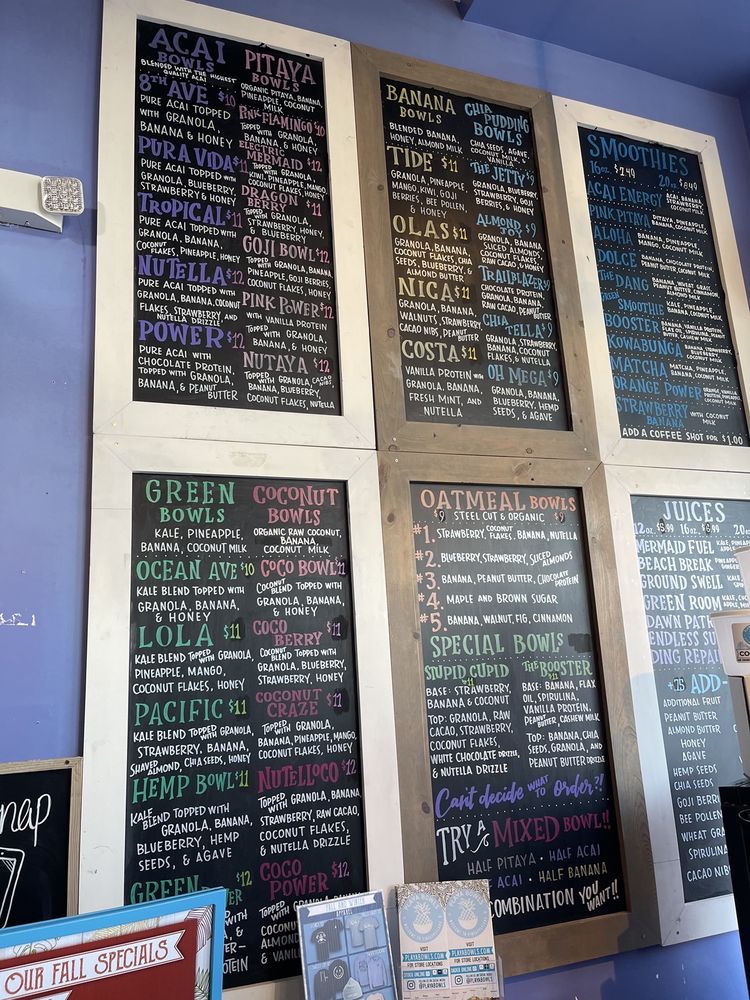 ACAI
BOWLS
BLENDED WITH THE HIGHEST
QUALITY ACAI
8TH AVE $10
PURE ACAI TOPPED
WITH GRANOLA,
BANANA & HONEY
PURA VIDA $11
PURE ACAI TOPPED WITH
GRANOLA, BLUEBERRY,
STRAWBERRY & HONEY
TROPICAL $11
PURE ACAI TOPPED WITH
GRANOLA, BANANA,
COCONUT FLAKES, PINEAPPLE, HONEY
NUTELLA $12
PURE ACAI TOPPED WITH
GRANOLA, BANANA, COCONUT
FLAKES, STRAWBERRY AND
NUTELLA DRIZZLE
POWER $12
PURE ACAI WITH
CHOCOLATE PROTEIN,
TOPPED WITH GRANOLA,
BANANA, & PEANUT
BUTTER
PITAYA
BOWLS
ORGANIC PITAYA, BANANA,
PINEAPPLE, COCONUT
MILK
PINK FLAMINGO $10
TOPPED WITH GRANOLA,
BANANA, & HONEY
ELECTRIC
MERMAID $12
TOPPED WITH GRANOLA,
KIWI, PINEAPPLE, MANGO,
COCONUT FLAKES, HONEY
DRAGON
BERRY $11
TOPPED WITH GRANOLA,
STRAWBERRY, HONEY,
& BLUEBERRY
GOJI BOWL $12
TOPPED WITH GRANOLA, BANANA,
PINEAPPLE, GOJI BERRIES,
COCONUT FLAKES, HONEY
PINK POWER $12
WITH VANILLA PROTEIN
TOPPED WITH GRANOLA,
BANANA, & HONEY
NUTAYA $12
TOPPED WITH GRANOLA, CACAO NIBS,
BANANA, BLUEBERRY,
COCONUT FLAKES, NUTELLA
BANANA
BOWLS
BLENDED BANANA,
HONEY, ALMOND MILK
TIDE $11
GRANOLA, PINEAPPLE
MANGO, KIWI, GOJI
BERRIES, BEE POLLEN
& HONEY
OLAS $11
GRANOLA, BANANA,
COCONUT FLAKES, CHIA
SEEDS, BLUEBERRY, &
ALMOND BUTTER
NICA $11
GRANOLA, BANANA,
WALNUTS, STRAWBERRY,
CACAO NIBS, PEANUT
BUTTER
COSTA $11
VANILLA PROTEIN WITH
GRANOLA, BANANA,
FRESH MINT, AND
NUTELLA
CHIA
PUDDING
BOWLS
CHIA SEEDS, AGAVE
COCONUT MILK, &
VANILLA
THE JETTY $9
GRANOLA, BLUEBERRY,
STRAWBERRY, GOJI
BERRIES, & HONEY
ALMOND
JOY $9
GRANOLA, BANANA,
SLICED ALMONDS,
COCONUT FLAKES,
RAW CACAO, & HONEY
TRAILBLAZER $9
CHOCOLATE PROTEIN,
GRANOLA, BANANA
RAW CACAO, PEANUT
BUTTER
CHIA
TELLA $9
GRANOLA, STRAWBERRY,
BANANA, COCONUT
FLAKES, & NUTELLA
OH MEGA $9
GRANOLA, BANANA,
BLUEBERRY, HEMP
SEEDS, & AGAVE
SMOOTHIES
16oz. 20oz.
ACAI ENERGY ACAI, BANANA,
STRAWBERRY,
COCONUT MILK
PINK PITAYA PITAYA, PINEAPPLE,
BANANA, COCONUT MILK
ALOHA BANANA, PINEAPPLE,
MANGO, COCONUT MILK
DOLCE BANANA, CHOCOLATE PROTEIN
PEANUT BUTTER, COCONUT MILK
THE DANG BANANA, WHEAT GRASS,
PEANUT BUTTER, CINNAMON,
ALMOND MILK
GREEN
SMOOTHIE KALE, PINEAPPLE,
BANANA, COCONUT MILK
BOOSTER BANANA, VANILLA PROTEIN,
FLAX OIL, SPIRULINA, PEANUT
BUTTER
KOWABUNGA
MATCHA MATCHA, PINEAPPLE,
BANANA, COCONUT MILK
ORANGE POWER
STRAWBERRY
BANANA WITH COCONUT
MILK
ADD A COFFEE SHOT FOR $1.00
GREEN
BOWLS
KALE, PINEAPPLE,
BANANA, COCONUT MILK
OCEAN AVE $10
KALE BLEND TOPPED WITH
GRANOLA, BANANA,
& HONEY
LOLA $11
KALE BLEND TOPPED WITH GRANOLA,
PINEAPPLE, MANGO,
COCONUT FLAKES, HONEY
PACIFIC $11
KALE BLEND TOPPED WITH GRANOLA,
STRAWBERRY, BANANA,
SHAVED ALMOND, CHIA SEEDS, HONEY
HEMP BOWL $11
KALE BLEND TOPPED WITH
GRANOLA, BANANA,
BLUEBERRY, HEMP
SEEDS, & AGAVE
GREEN
COCONUT
BOWLS
ORGANIC RAW COCONUT,
BANANA,
COCONUT MILK
COCO BOWL $11
COCONUT BLEND TOPPED WITH
GRANOLA, BANANA,
& HONEY
COCO
BERRY $11
COCONUT BLEND TOPPED WITH
GRANOLA, BLUEBERRY,
STRAWBERRY, HONEY
COCONUT
CRAZE $11
TOPPED WITH GRANOLA,
BANANA, PINEAPPLE, MANGO,
COCONUT FLAKES, HONEY
NUTELLOCO $12
TOPPED WITH GRANOLA, BANANA,
STRAWBERRY, RAW CACAO,
COCONUT FLAKES,
& NUTELLA DRIZZLE
COCO
POWER $12
TOPPED WITH GRANOLA,
OATMEAL BOWLS
$9 STEEL CUT & ORGANIC $9
#1. STRAWBERRY, COCONUT FLAKES, BANANA, NUTELLA
#2. BLUEBERRY, STRAWBERRY, SLICED ALMONDS
#3. BANANA, PEANUT BUTTER, CHOCOLATE PROTEIN
#4. MAPLE AND BROWN SUGAR
#5. BANANA, WALNUT, FIG, CINNAMON
SPECIAL BOWLS
STUPID CUPID
$11
BASE: STRAWBERRY,
BANANA & COCONUT
TOP: GRANOLA, RAW
CACAO, STRAWBERRY,
COCONUT FLAKES,
WHITE CHOCOLATE DRIZZLE,
& NUTELLA DRIZZLE
THE BOOSTER
$11
BASE: BANANA, FLAX
OIL, SPIRULINA,
VANILLA PROTEIN,
PEANUT BUTTER, CASHEW MILK
TOP: BANANA, CHIA
SEEDS, GRANOLA, AND
PEANUT BUTTER DRIZZLE
Can't decide WHAT TO Order?!
TRY A MIXED BOWL!!
HALF PITAYA • HALF ACAI
ACAI • HALF BANANA
COMBINATION YOU WANT!!
JUICES
12oz. 16oz. 20oz
MERMAID FUEL
BEACH BREAK
GROUND SWELL
GREEN ROOM
DAWN PATR
ENDLESS SU
DING REPAI
+.75 ADD-
ADDITIONAL FRUIT
PEANUT BUTTER
ALMOND BUTTER
HONEY
AGAVE
HEMP SEEDS
CHIA SEEDS
GOJI BERRI
BEE POLLEN
WHEAT GRA
SPIRULINA
CACAO NIBS
nap
OUR FALL SPECIALS
FALL AND WINTER
APPAREL
@PLAYABOWLS
VISIT
PLAYABOWLS.COM
FOR STORE LOCATIONS
ORDER ONLINE
@PLAYABOWLS
VISIT
PLAYABOWLS.COM
FOR STORE LOCATIONS
ORDER ONLINE
@PLAYABOWLS